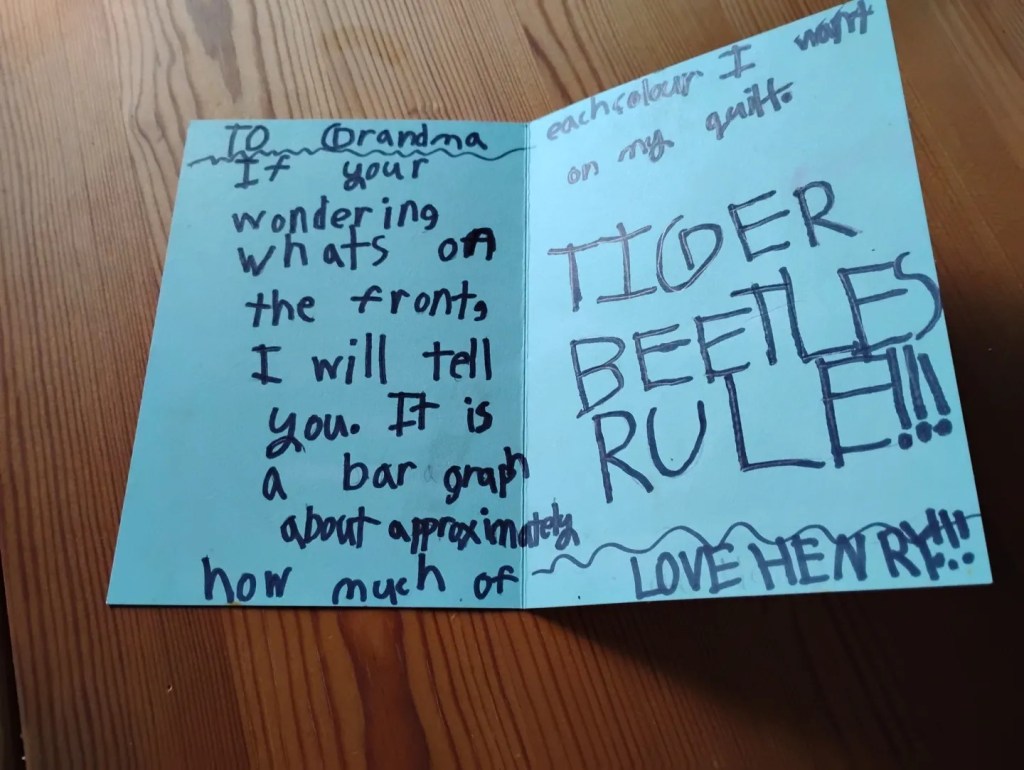 TO Grandma
If your
wondering
whats on
the front,
I will tell
you. It is
a bar graph
about approximately
how much of
each colour I want
on my quilt.
TIGER
BEETLES
RULE!!!
LOVE HENRY!!!